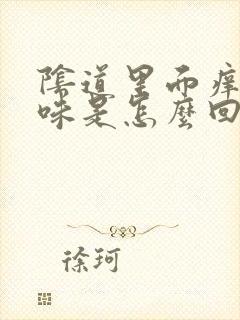 陰道里而痒
味是怎麼回
徐珂